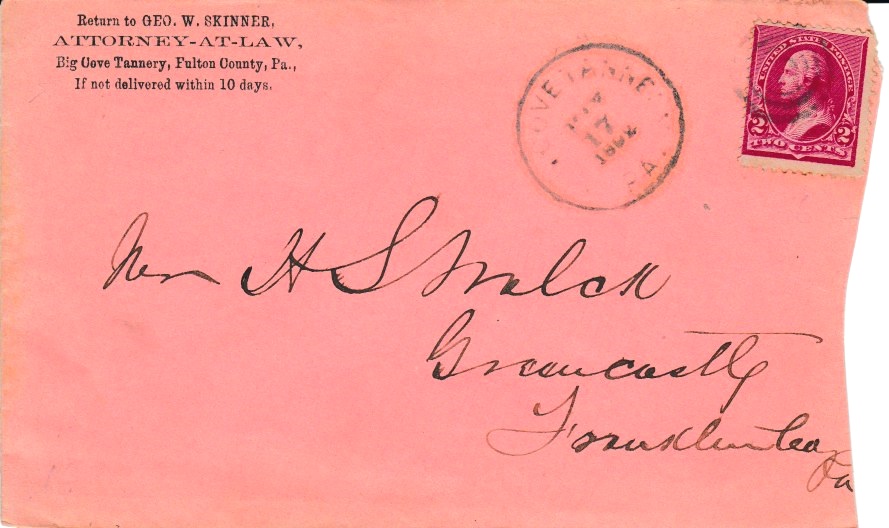 Return to GEO. W. SKINNER,
ATTORNEY-AT-LAW,
Big Cove Tannery, Fulton County, Pa.,
If not delivered within 10 days.
COVE TANNE
17
PA.
UNITED STATES POSTAGE
2 2
TWO CENTS
H S
Greencastle
Franklin Co
Pa